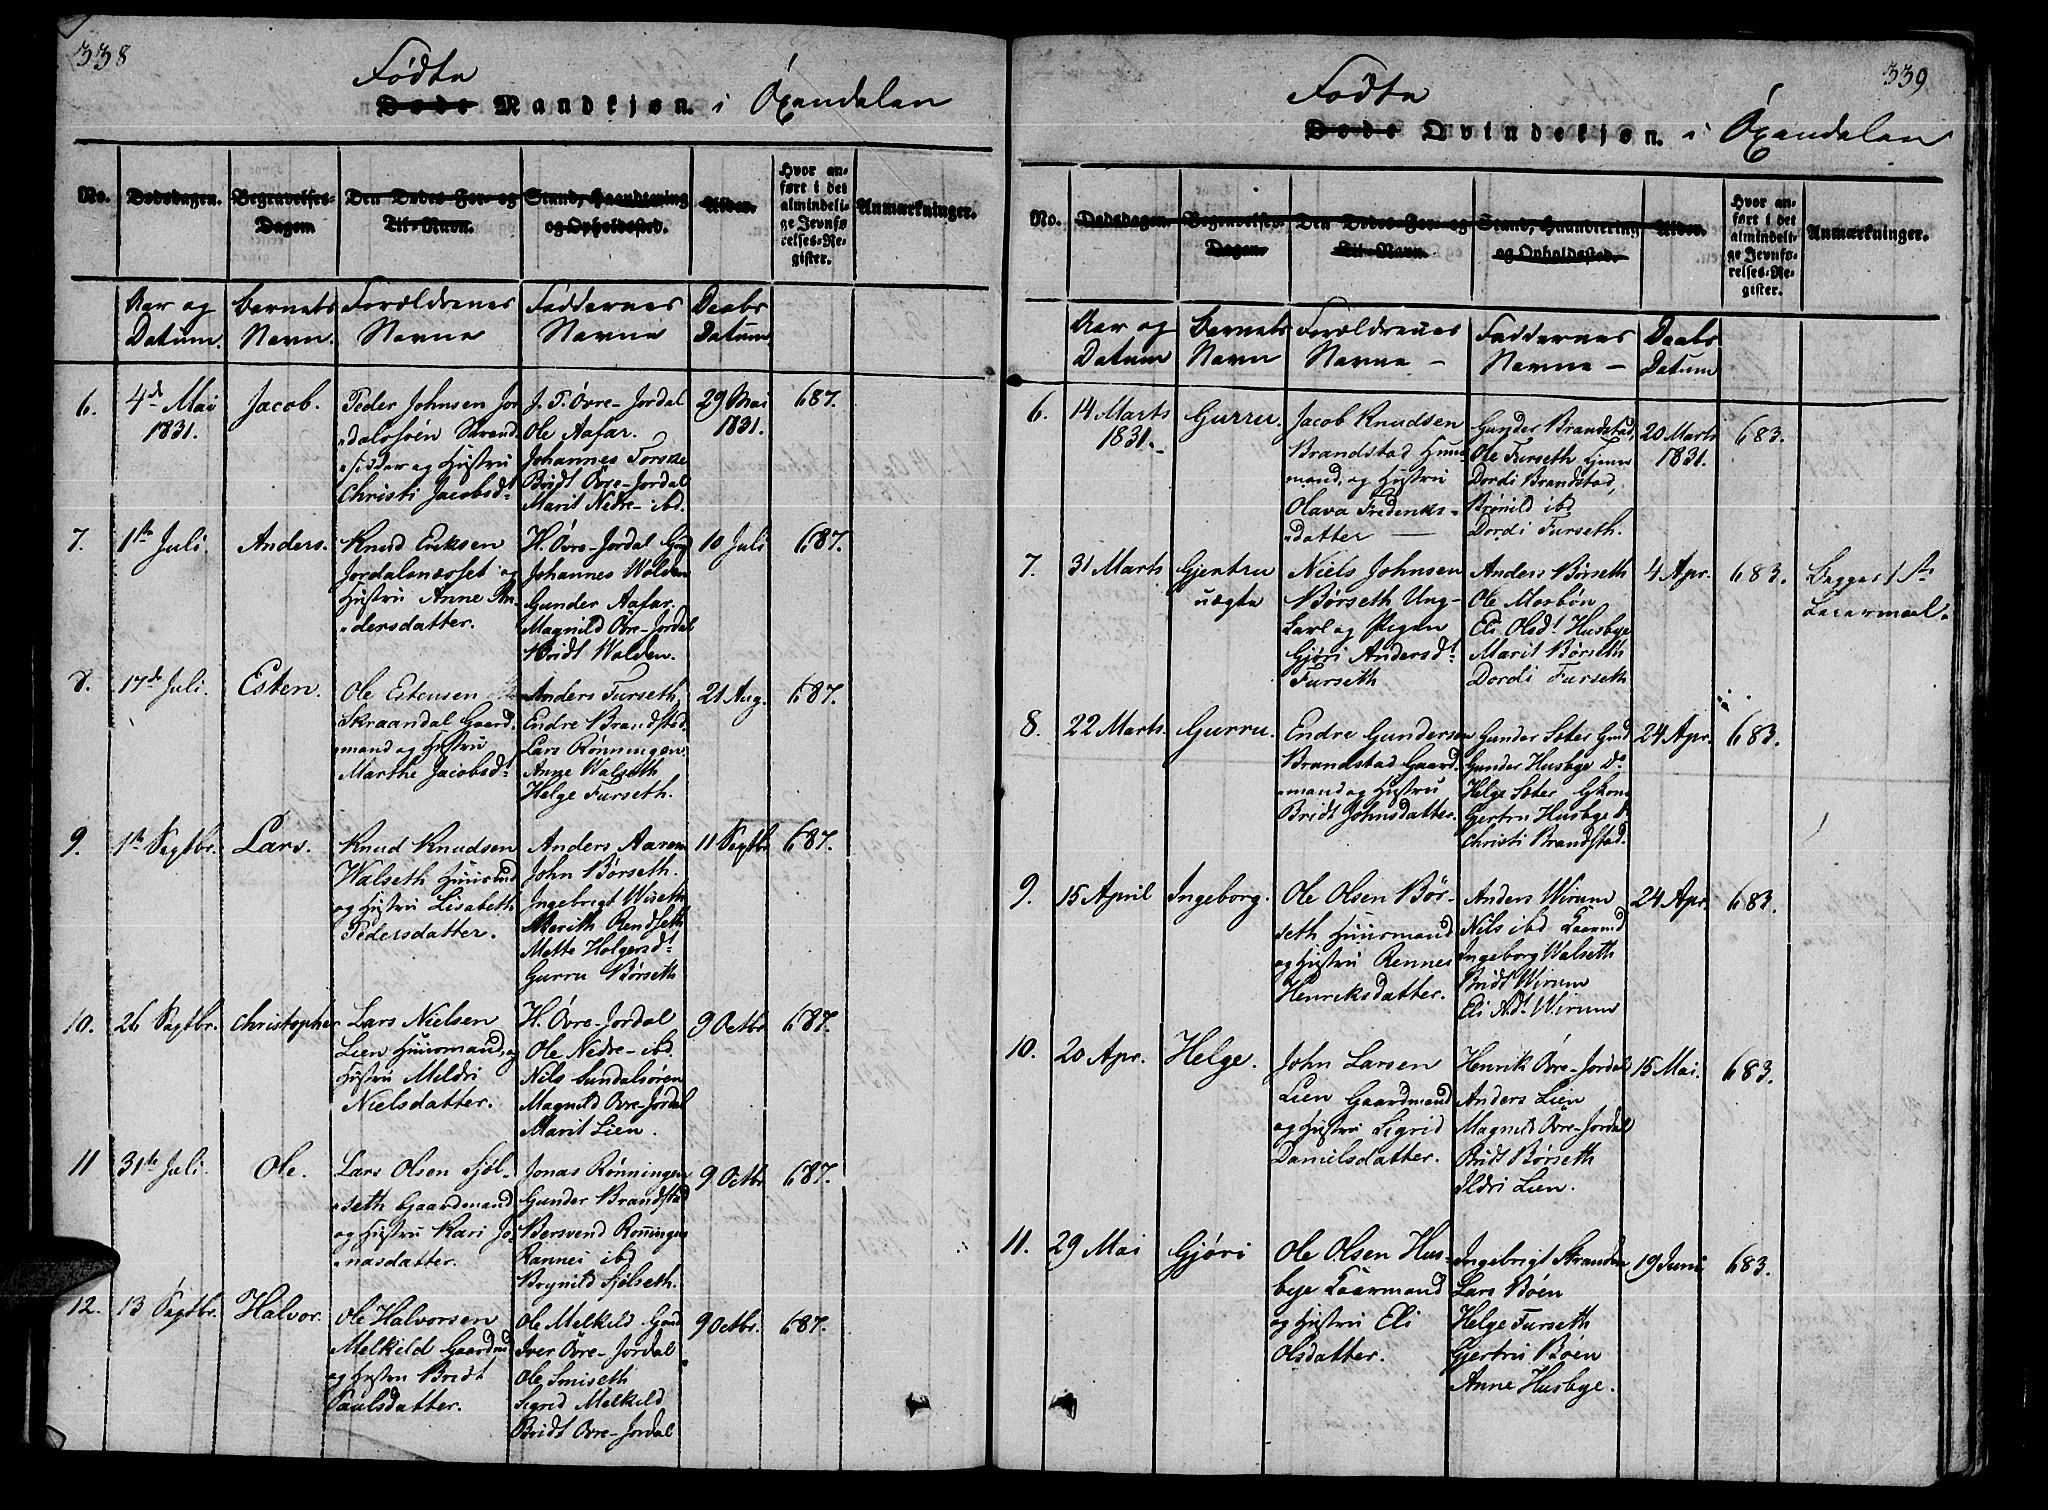 338
Födte
Døde Mandkjøn. i Øxendalen
No.
Dødsdagen.
Begravelses-
Dagen
Den Dødes For- og
Til-Navn.
Stand, Haandtering
og Opholdssted.
Alder.
Hvor an-
ført i det
almindeli-
ge Jevnfø-
relses-Re-
gister.
Anmærkninger.
Aar og
Datum.
Barnets
Navn.
Forældrenes
Navne
Faddernes
Navne
Daabs
Datum
6.
4de Mai
1831.
Jacob.
Peder Johnsen Jor
dalssöen Strand
sidder og Hustru
Christi Jacobsdt
J. T. Övre-Jordal
Ole Aafar.
Johannes Torske
Bridt Övre-Jordal
Marit Nedre-ibd.
29 Mai
1831.
687.
7.
1ste Juli.
Anders.
Knud Eriksen
Jordalsnæsset og
Hustru Anne An-
dersdatter.
H. Övre-Jordal Gmd
Johannes Wolden
Gunder Aafar.
Magnild Övre-Jordal
Bridt Wolden.
10 Juli
687.
8.
17de Juli.
Esten.
Ole Estensen
Skraandal Gaard
mand og Hustru
Marthe Jacobsdt
Anders Furseth.
Endre Brandstad
Lars Rönningen.
Anne Walseth
Helge Furseth.
21 Aug.
687.
9.
1ste Septbr.
Lars.
Knud Knudsen
Walseth Huusmd
og Hustru Lisabeth
Pedersdatter.
Anders Aarem
John Börseth.
Ingebrigt Wiseth
Merith Rendseth
Mette Holgersdt
Gurru Börseth
11 Septbr
687.
10.
26 Septbr.
Christopher
Lars Nielsen
Lien Huusmand og
Hustru Meldri
Nielsdatter.
H. Övre-Jordal
Ole Nedre-ibd.
Nils Sundalsören
Magnild Övre-Jordal
Marit Lien.
9 Octbr
687.
11
31te Juli.
Ole.
Lars Olsen Fjöl-
seth Gaardmand
og Hustru Kari Jo-
nasdatter.
Jonas Rönningen
Gunder Brandstad
Bersvend Ronningen
Rannei ibd
Brynild Fjölseth.
9 Octbr
687.
12.
13 Septbr.
Halvor.
Ole Halvorsen
Melkild Gaardmd
og Hustru Bridt
Paulsdatter.
Ole Melkild Gmd
Iver Övre-Jordal
Ole Smiseth
Sigrid Melkild
Bridt Övre-Jordal
9 Octbr.
687.
339
Födte
Døde Qvindekjøn. i Øxendalen
No.
Dødsdagen.
Begravelses-
Dagen.
Den Dødes For- og
Til-Navn.
Stand, Haandtering
og Opholdssted.
Alder.
Hvor an-
ført i det
almindeli-
ge Jevnfø-
relses-Re-
gister.
Anmærkninger.
Aar og
Datum
Barnets
Navn
Forældrenes
Navne -
Faddernes
Navne -
Daabs
Datum
6.
14 Marts
1831.
Gurru.
Jacob Knudsen
Brandstad Huus
mand, og Hustru
Olava Frederiks-
datter
Gunder Brandstad,
Ole Furseth
Dordi Brandstad,
Brönild ibd
Dordi Furseth.
20 Marts
1831.
683.
7.
31 Marts
Gjertru
uægte
Niels Johnsen
Börseth Ung-
karl og Pigen
Gjöri Andersdt
Furseth
Anders Börseth
Ole Mosbön
Eli Olsdt Husbye
Marit Börseth
Dordi Furseth
4 Apr.
683.
Begges 1ste
Leiermaal.
8.
22 Marts.
Gurru.
Endre Gundersen
Brandstad Gaard
mand og Hustru
Bridt Johnsdatter.
Gunder Sæter Gmd
Gunder Husbye Do
Helge Sæter Gkone
Gjertru Husbye Do
Christi Brandstad.
24 Apr.
683.
9.
15 April
Ingeborg.
Ole Olsen Bör-
seth Huusmand
og Hustru Rennes
Henriksdatter.
Anders Wirum
Nils ibd Gaarmd
Ingeborg Walseth
Bridt Wirum
Eli Adt Wirum
24 Apr.
683.
10.
20 Apr.
Helge.
John Larsen
Lien Gaardmand
og Hustru Sigrid
Danielsdatter.
Henrik Övre-Jordal
Anders Lien
Magnild Övre-Jordal
Bridt Börseth
Ildri Lien.
15 Mai.
683.
11.
29 Mai
Gjöri
Ole Olsen Hus-
bye Gaarmand
og Hustru Eli
Olsdatter.
Ingebrigt Stranden
Lars Böen
Helge Furseth
Gjertru Böen
Anne Husbye.
19 Juni
683.